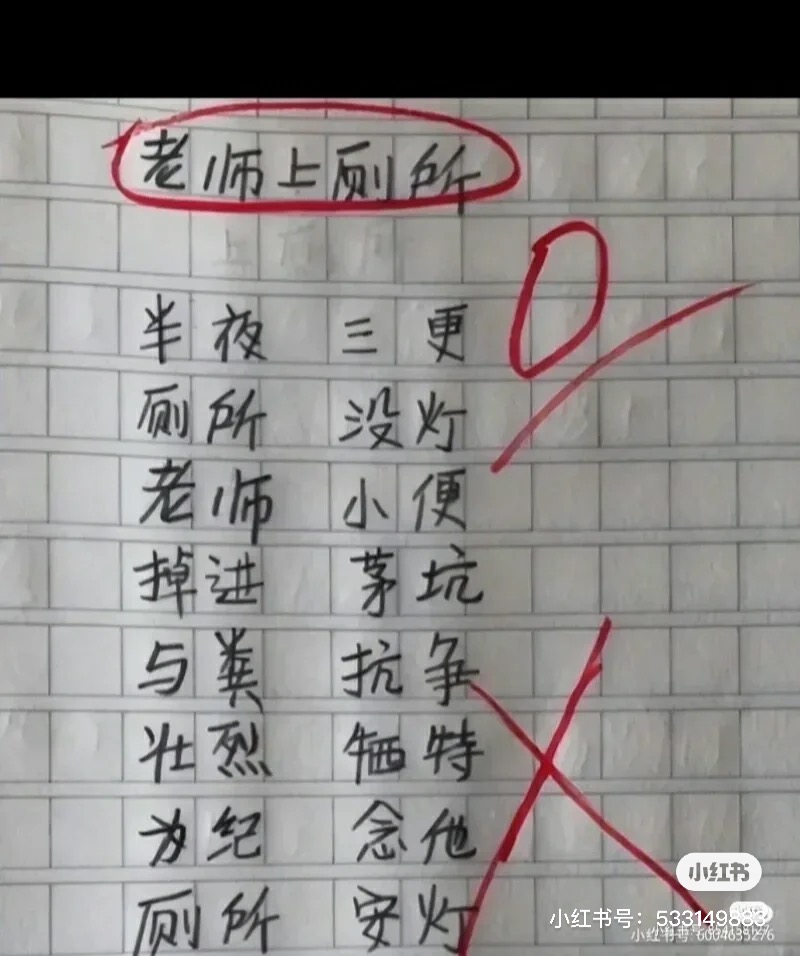 老师上厕所
0
半夜 三更
厕所 没灯
老师 小便
掉进 茅坑
与粪 抗争
壮烈 牺特
为纪 念他
厕所 安灯
小红书
小红书号：533149883
小红书号：6004635276